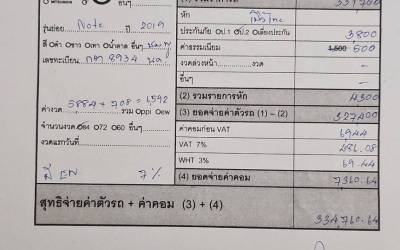 อื่นๆ
331,700
หัก
รุ่นย่อย Note ปี 2019
ประกันภัย ป.1 ป.2 เตี้ยงประกัน 3,800
สี ดำ ขาว เทา น้ำตาล อื่นๆ ชมพู
ค่าธรรมเนียม 1,500 500
เลขทะเบียน 8934
งวดล่วงหน้า งวด -
อื่นๆ -
(2) รวมรายการหัก 4300
ค่างวด 5884 + 708 = 6,592 รวม PPI EW
(3) ยอดจ่ายค่าตัวรถ (1) – (2) 327400
จำนวนงวด 72 60 อื่นๆ
ค่าคอมก่อน VAT 6944
งวดแรกวันที่
VAT 7% 486.08
WHT 3% 69.44
7%
(4) ยอดจ่ายค่าคอม 7360.64
สุทธิจ่ายค่าตัวรถ + ค่าคอม (3) + (4)
334,760.64